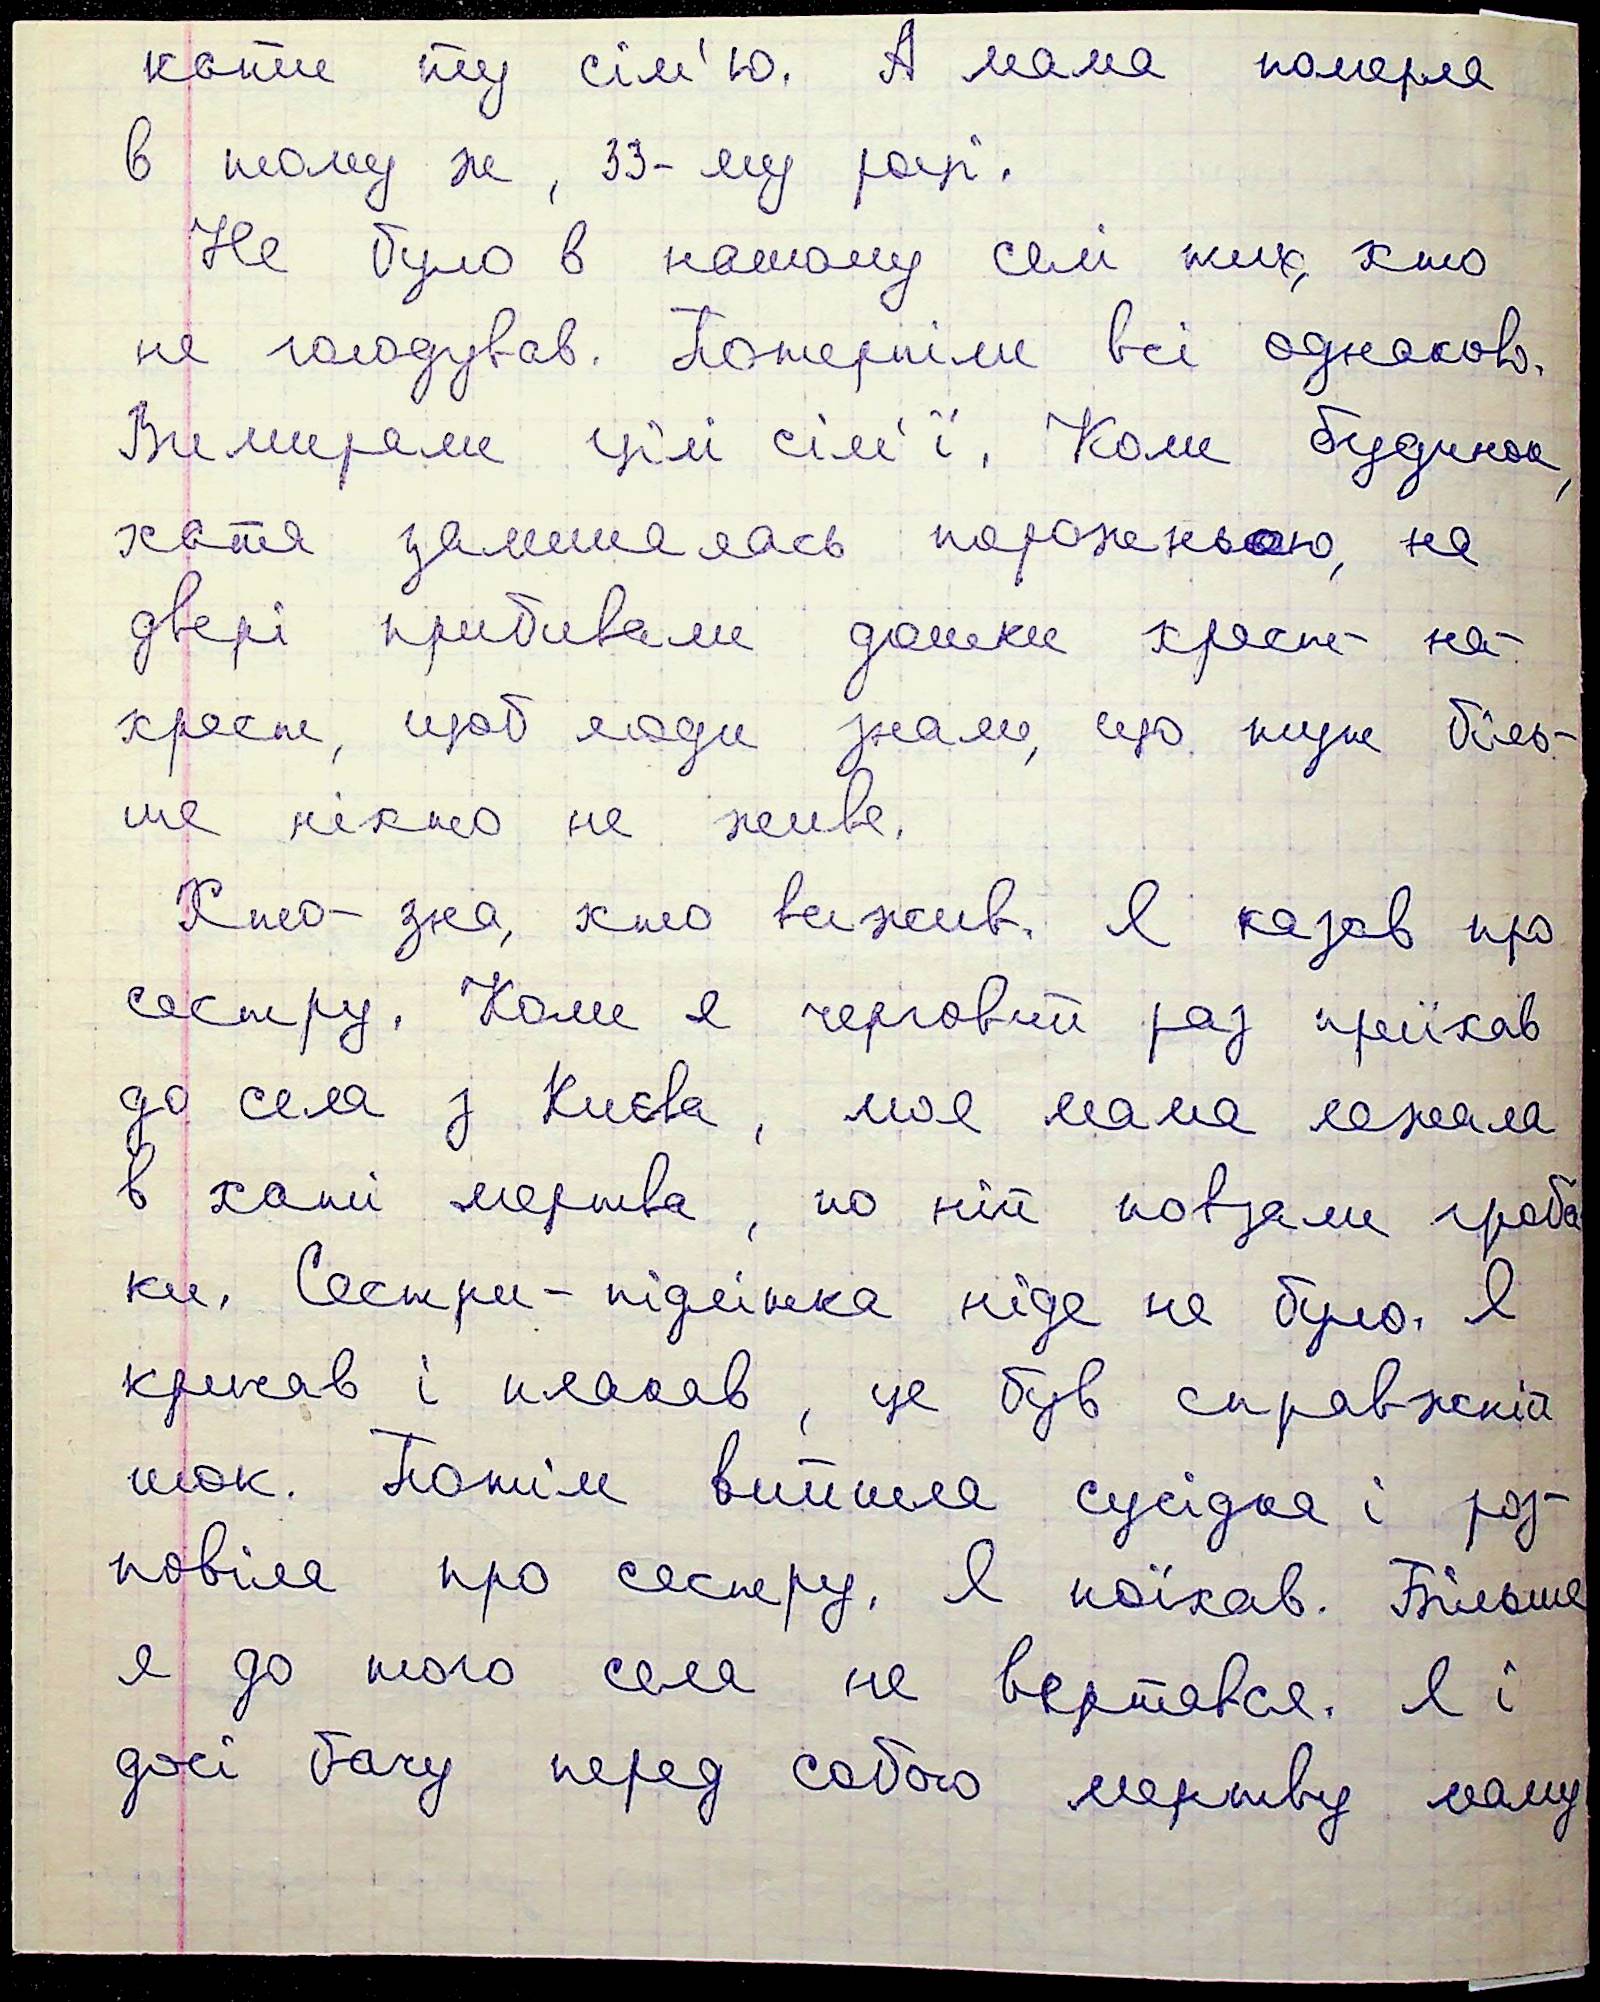 кати ту сім'ю. А мама померла
в тому ж, 33-му році.
Не було в нашому селі тих, хто
не голодував. Потерпіли всі однаково.
Вимирали цілі сім'ї. Коли будинок,
хата залишалась порожньою, на
двері прибивали дошки хрест-на-
хрест, щоб люди знали, що тут біль-
ше ніхто не живе.
Хто-зна, хто вижив. Я казав про
сестру. Коли я черговий раз приїхав
до села з Києва, моя мама лежала
в хаті мертва, по ній повзали гроба
ки. Сестри-підлітка ніде не було. Я
кричав і плакав, це був справжній
шок. Потім вийшла сусідка і роз-
повіла про сестру. Я поїхав. Більше
я до того села не вертався. Я і
досі бачу перед собою мертву маму